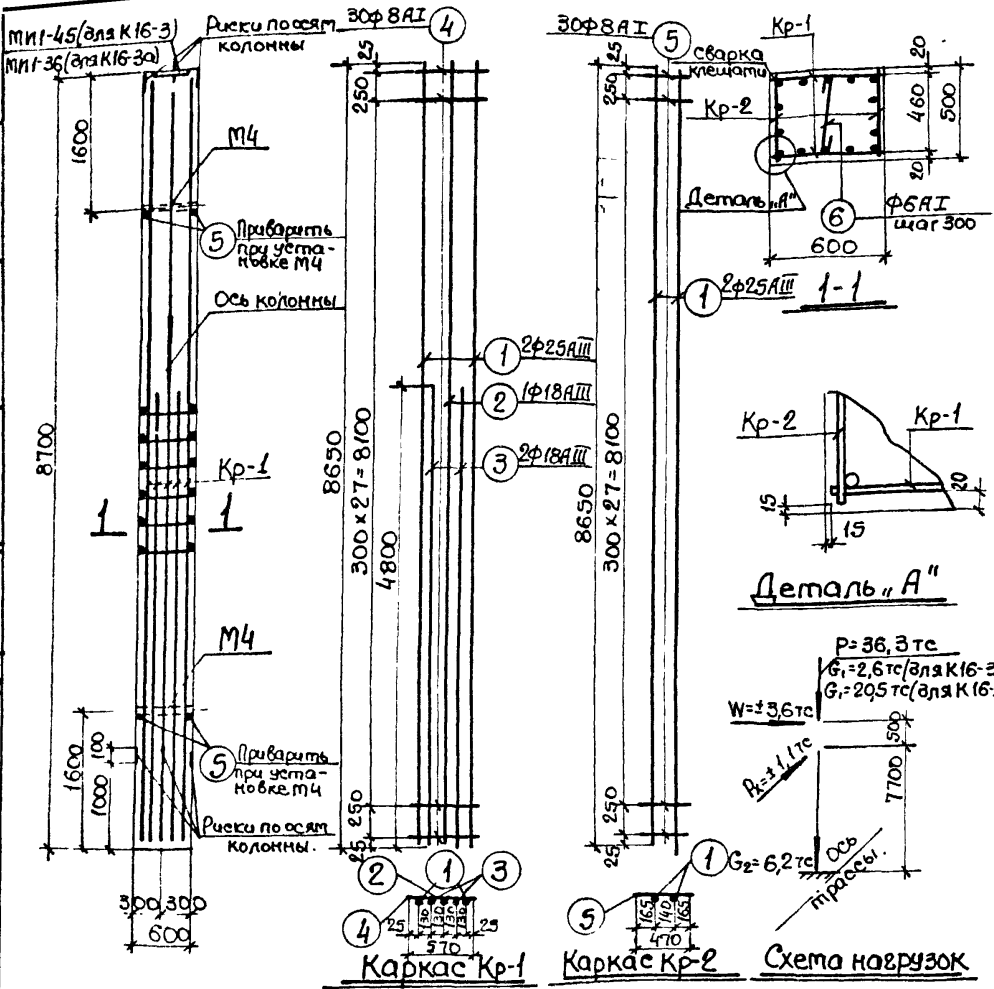 МИ1-45(для К16-3)
МИ1-36(для К16-3а)
Риски по осям
колонны
1600
М4
5
Приварить
при уста-
новке М4
Ось колонны
8700
Кр-1
1 1
М4
1600
100
1000
5
Приварить
при уста-
новке М4
Риски по осям
колонны.
300 300
600
30ф8АI
4
25
250
8650
300×27=8100
4800
1 2ф25АIII
2 1ф18АIII
3 2ф18АIII
250
25
2 1 3
4
25 130 130 130 130 25
570
Каркас Кр-1
30ф8АI
5
сварка
клещами
25
250
8650
300×27=8100
1 2ф25АIII
250
25
1
5
165 140 165
470
Каркас Кр-2
Кр-1
Кр-2
20
460
500
20
Деталь „А"
6
ф6АI
шаг 300
600
1-1
Кр-2
Кр-1
20
15
15
Деталь „А"
P=36,3тс
G₁=2,6тс(для К16-3
G₁=20,5тс(для К16-
W=±3,6тс
500
±1,1тс
7700
G₂=6,2тс
ось
трассы.
Схема нагрузок